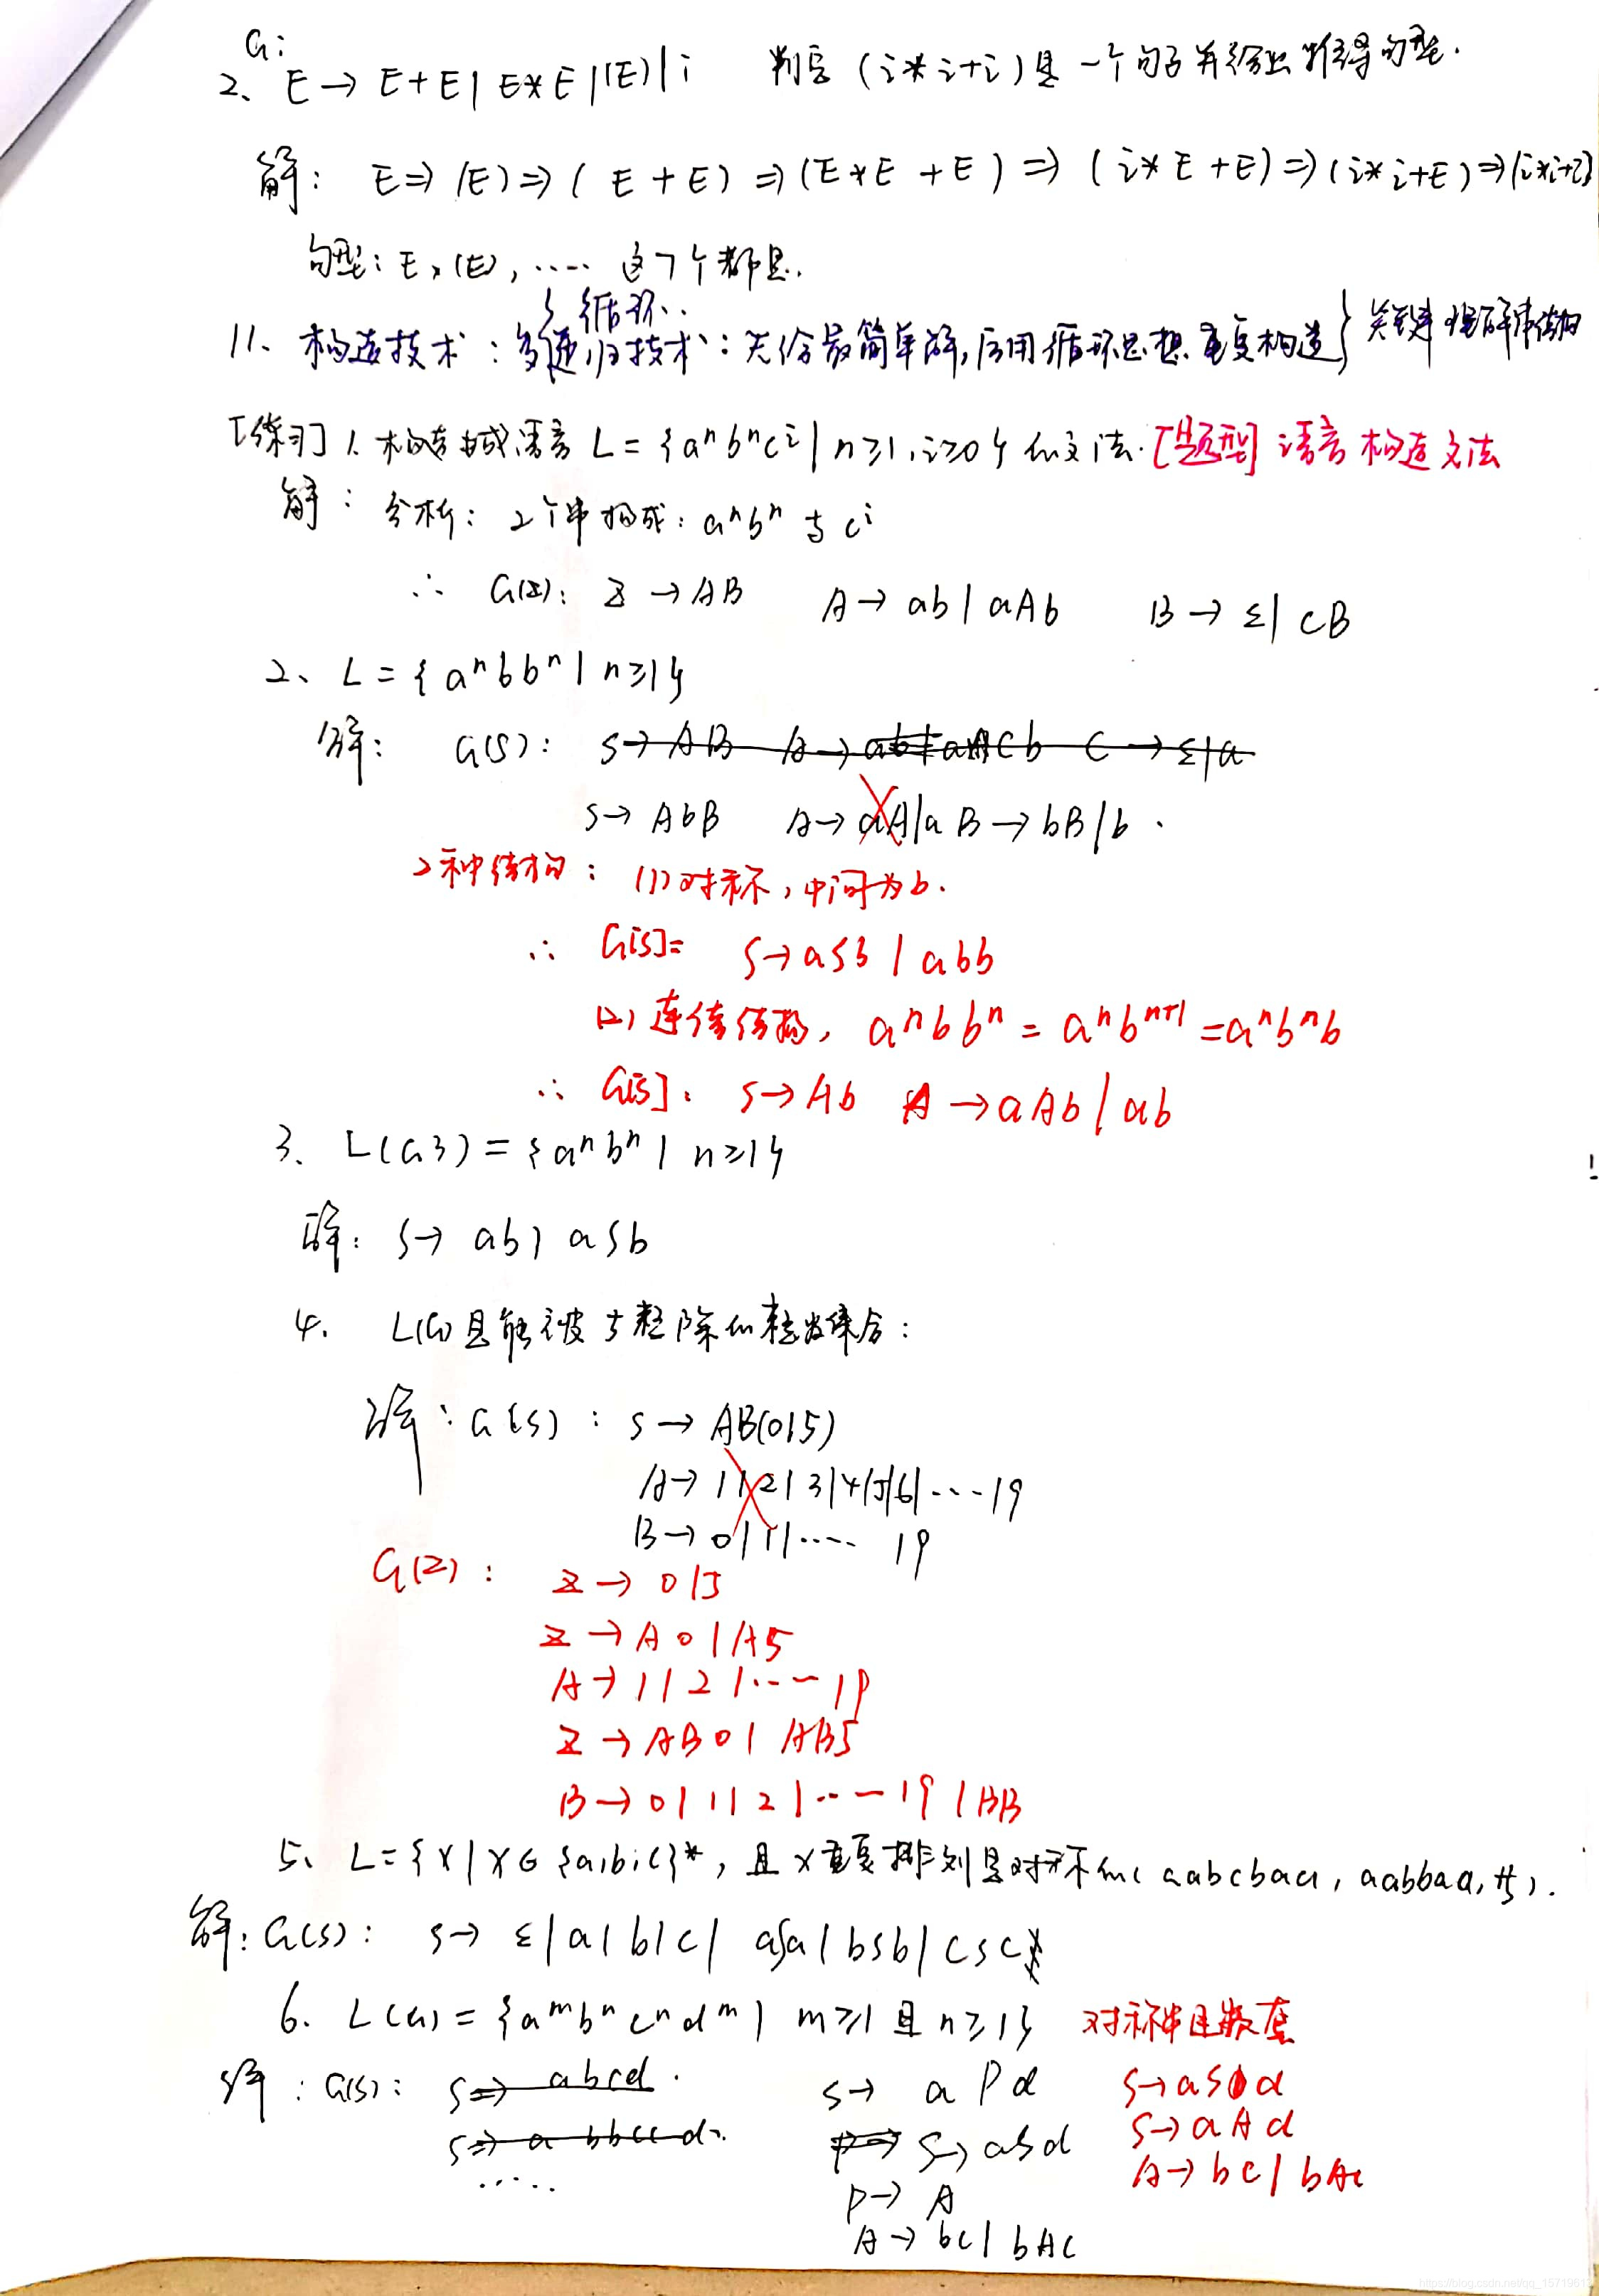 G:
2、 E → E+E | E*E | (E) | i 判断 (i*i+i) 是一个句子并给出推导句型.
解: E ⇒ (E) ⇒ (E+E) ⇒ (E*E+E) ⇒ (i*E+E) ⇒ (i*i+E) ⇒ (i*i+i)
句型: E, (E), ..... 这7个都是.
循环..
11、构造技术: 递归技术: 先给最简单解,后用循环思想重复构造} 关键
[练习] 1. 构造语言 L = {aⁿbⁿcⁱ | n≥1, i≥0} 的文法. [题型] 语言构造文法
解: 分析: 2个串构成: aⁿbⁿ 与 cⁱ
∴ G(Z): Z → AB A → ab | aAb B → ε | cB
2、 L = {aⁿbbⁿ | n≥1}
解: G(S): S → AB A → ab | aACb C → ε | a
S → AbB A → aA | a B → bB | b .
2种结构: (1) 对称, 中间为b.
∴ G[S]= S → aSb | abb
(2) 连续结构, aⁿbbⁿ = aⁿbⁿ⁺¹ = aⁿbⁿb
∴ G[S]: S → Ab A → aAb | ab
3、 L(G3) = {aⁿbⁿ | n≥1}
解: S → ab | aSb
4、 L(G)是能被5整除的整数集合:
解: G(S): S → AB(0|5)
A → 1|2|3|4|5|6|...|9
B → 0|1|.... |9
G(Z): Z → 0|5
Z → A0 | A5
A → 1|2|...|9
Z → AB0 | AB5
B → 0|1|2|...|9 | BB
5、 L = {x | x∈{a,b,c}*, 且x重复排列是对称的 (aabcbaa, aabbaa, 等).
解: G(S): S → ε | a | b | c | aSa | bSb | cSc
6. L(G) = {aᵐbⁿcⁿdᵐ | m≥1 且 n≥1} 对称串且嵌套
解: G(S): S ⇒ abcd. S → aPd S → aSd
S ⇒ abbccd.. P → S → aSd S → aAd
..... P → A A → bc | bAc
A → bc | bAc